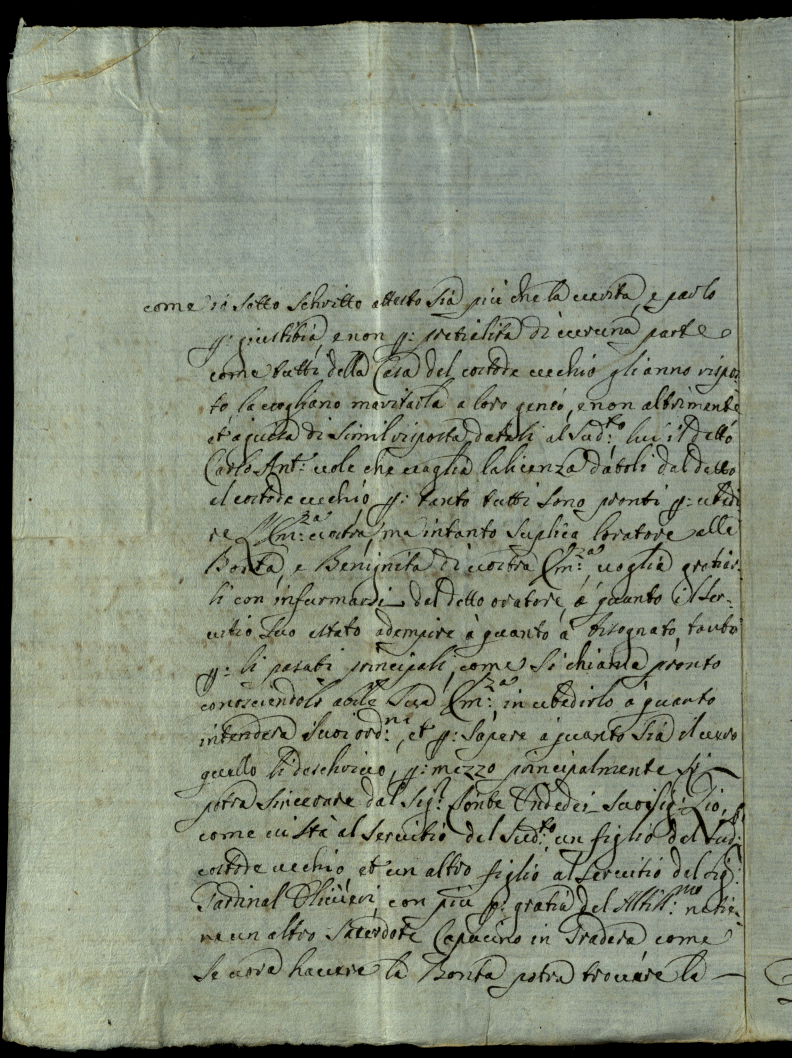 come io sotto schritto attesto sia più che la uerità, e parlo
p: giustitia, e non p: pretialità di ueruna parte
come tutti della Casa del costode uecchio gli anno rispo-
to, la uogliano maritarla a loro genio, e non altrimente
et a guisa di simil risposta datali al Sud.to: lui il detto
Carlo Ant.: uole che uaglia la licenza datoli dal detto
el costode uecchio p: tanto tutti sono pronti p: ubidi
re Em:za uostra, ma intanto suplica loratore alle
Bontà e Benignità di uostra Em:za uoglia gratiar-
li con infurmarsi del detto oratore, à quanto il ser-
uitio suo estato adempire à quanto à bisognato, tanto
p: li pasati principali, come si chiama pronto
conosciendolo abile sua Em:za in ubidirlo à quanto
intenderà i suoi ord:ni, et p: sapere à quanto sia il uero
quello li deschriuo, p: mezzo principalmente si
potrà sincerare dal Sig.r Conte Undedei suo Sig: Zio,
come ui stà al seruitio del Sud.to un figlio del Sud:
costode uecchio et un altro figlio al seruitio del Sig:
Cardinal Oliuieri con più p: gratia del Altiss:mo
ne un altro Sacerdote Capucino in Pradera come
se uorà hauere la Bontà potrà trouare la